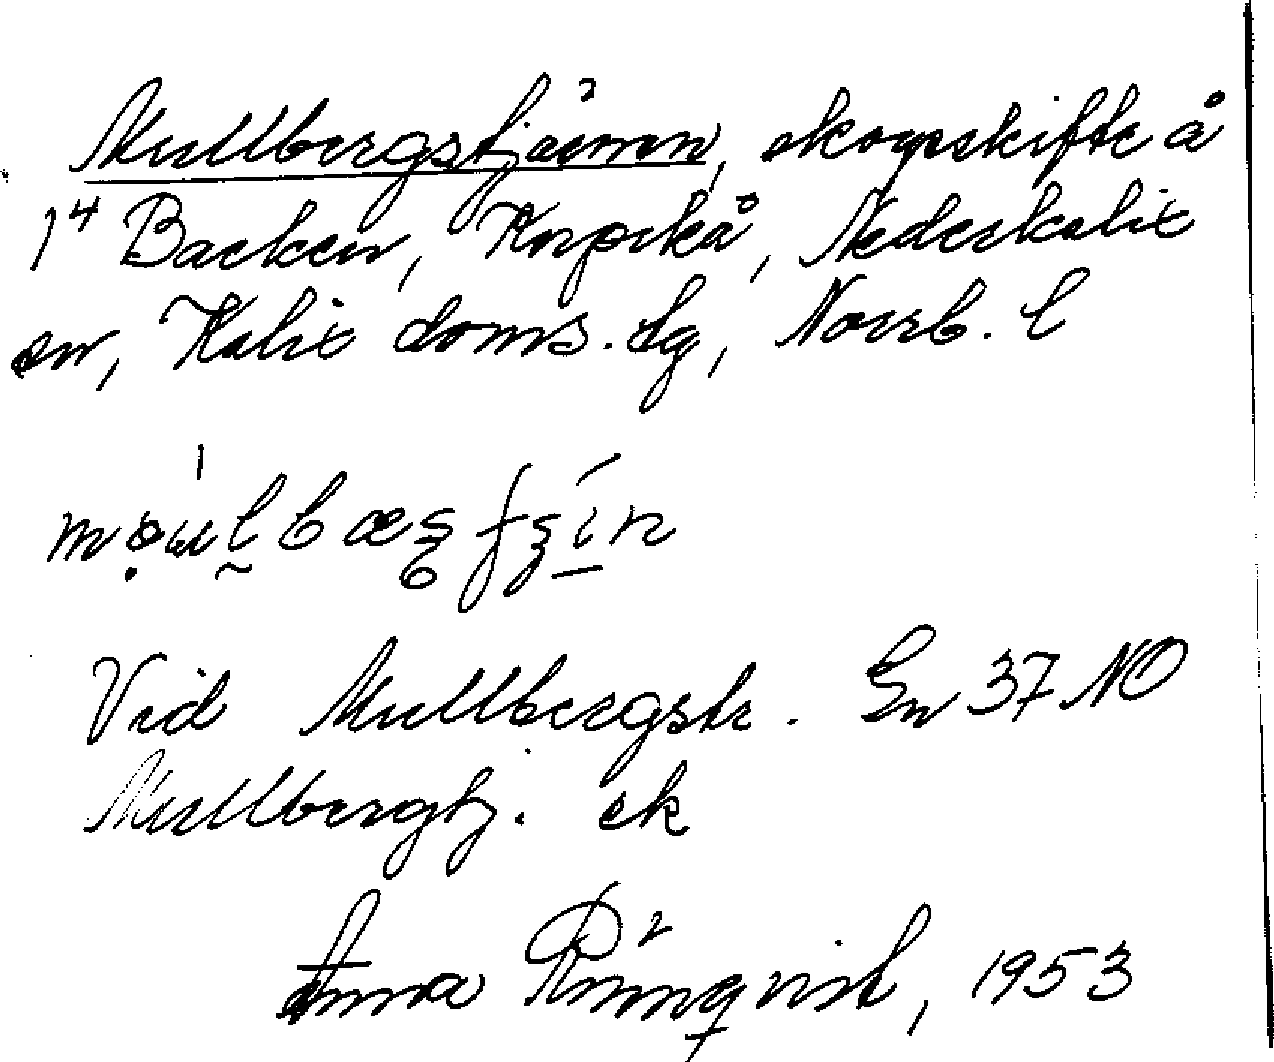 Mullbergstjärnen, skogsskifte å
1⁴ Backen, Korpikå, Nederkalix
sn, Kalix doms. lg, Norrb. l
Vid Mullbergstr. En 37 NO
Mullbergtj. ek
Anna Rönnqvist, 1953